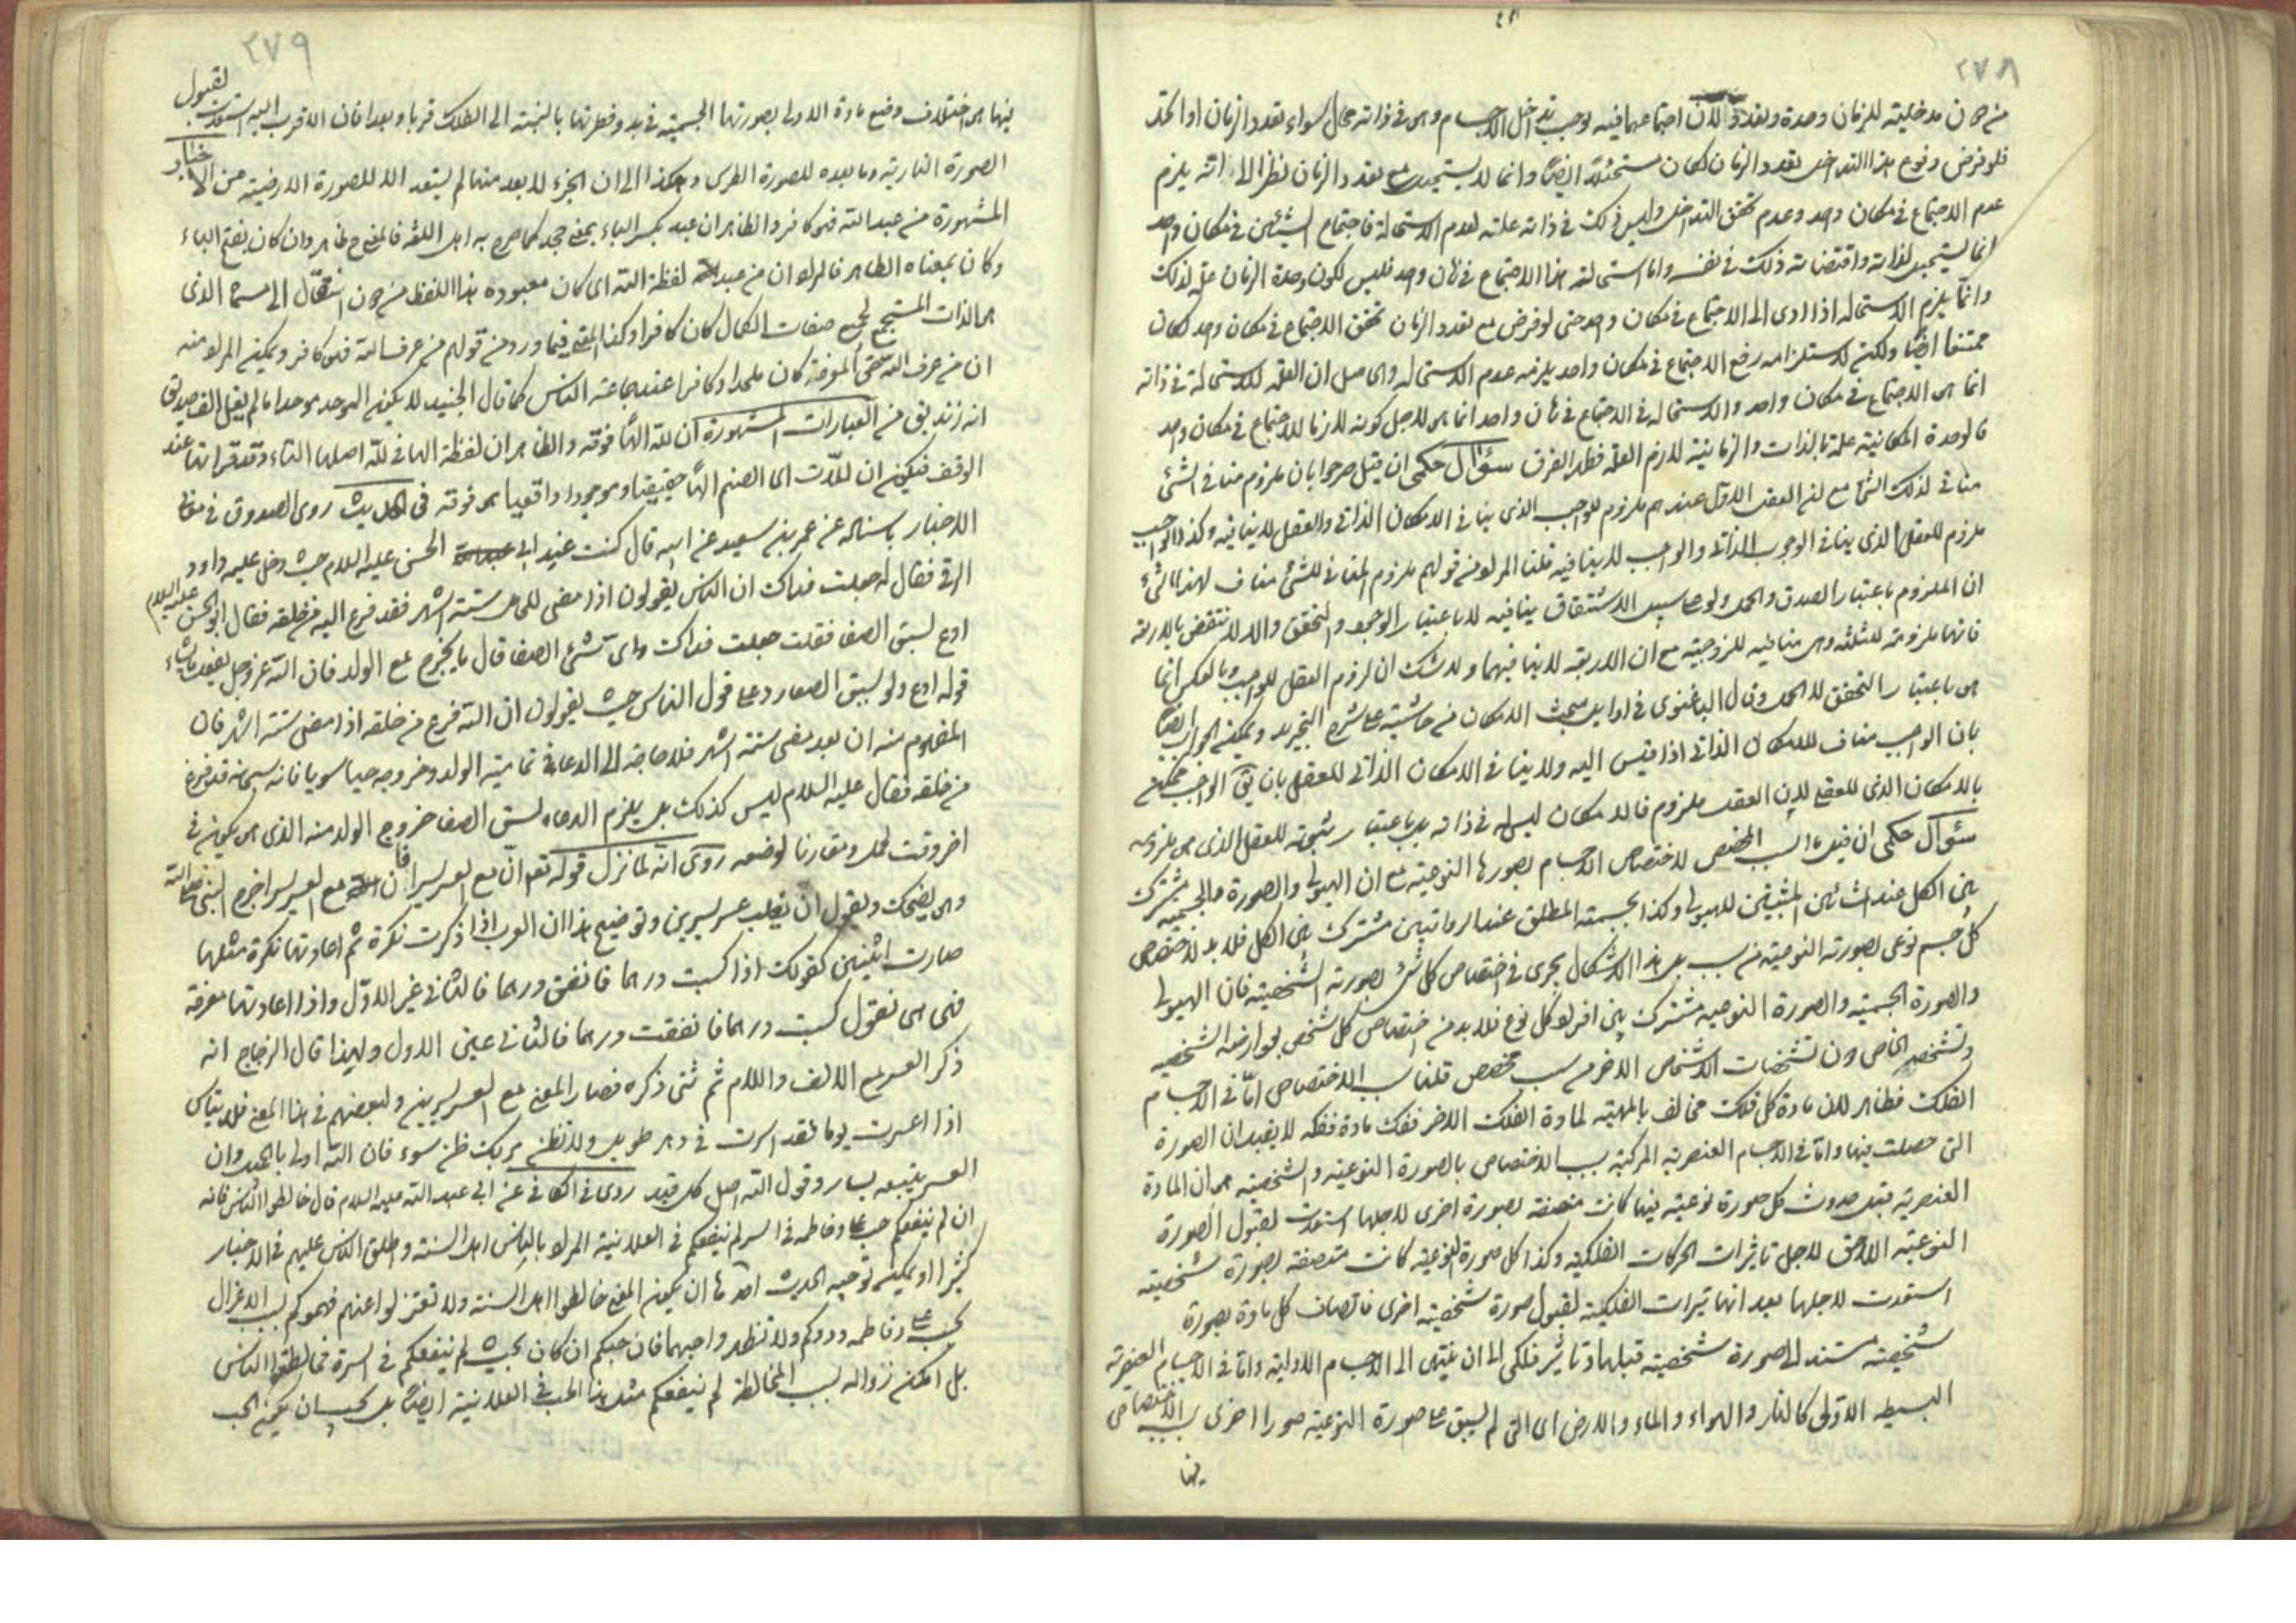 ٢٧٨
من دون مدخلية للزمان وحدة وتعددا لان اجتماعهما فيه يوجب تداخل الاجسام وهى فى ذاته محال سواء تعدد الزمان او اتحد
فلو فرض وقوع هذا التداخل بتعدد الزمان لكان مستحيلا ايضا وانما لا يستحيل مع تعدد الزمان نظرا الى انه يلزم
عدم الاجتماع فى مكان واحد وعدم تحقق التداخل وليس ذلك فى ذاته علته لعدم الاستحالة فاجتماع الشيئين فى مكان واحد
انما يستحيل لذاته واقتضائه ذلك فى نفسه واما استحالة هذا الاجتماع فى زمان واحد فليس لكون وحدة الزمان علة لذلك
وانما يلزم الاستحالة اذا ادى الى الاجتماع فى مكان واحد حتى لو فرض مع تعدد الزمان تحقق الاجتماع فى مكان واحد لكان
ممتنعا ايضا ولكنه لاستلزامه رفع الاجتماع فى مكان واحد يلزمه عدم الاستحالة والحاصل ان العلة للاستحالة فى ذاته
انما هى الاجتماع فى مكان واحد والاستحالة فى الاجتماع فى زمان واحد انما هى لاجل كونه لازما للاجتماع فى مكان واحد
فالوحدة المكانية علة بالذات والزمانية لازم العلة فظهر الفرق سؤال حكمى ان قيل صرحوا بان ملزوم منافى الشئ
مناف لذلك الشئ مع ان العقل الاول عندهم ملزوم للواجب الذى ينافى الامكان الذاتى والعقل لا ينافيه وكذا الواجب
ملزوم للعقل الذى ينافى الوجوب الذاتى والواجب لا ينافيه قلنا المراد من قولهم ملزوم المنافى للشئ مناف لهذا الشئ
ان الملزوم باعتبار الصدق والحمل ولو على سبيل الاشتقاق ينافيه لا باعتبار الوجود والتحقق والا لانتقض بالاربعة
فانها ملزومة للثلثة وهى منافية للزوجية مع ان الاربعة لا ينافيها ولا شك ان لزوم العقل للواجب وبالعكس انما
هى باعتبار التحقق لا الحمل وقال الباغنوى فى اوايل مبحث الامكان من حاشيته على شرح التجريد ويمكن الجواب ايضا
بان الواجب مناف للامكان الذاتى اذا قيس اليه ولا ينافى الامكان الذاتى للعقل بان يق الواجب ممكن
بالامكان الذى للعقل لان العقل ملزوم فالامكان ليس له فى ذاته بل باعتبار ثبوته للعقل الذى هى ملزومه
سؤال حكمى ان قيل ما السبب المخصص لاختصاص الاجسام بصورها النوعية مع ان الهيولى والصورة الجسمية مشترك
بين الكل عند المشائين المثبتين للهيولى وكذا الجسمية المطلق عند الرواقيين مشترك بين الكل فلا بد لاختصاص
كل جسم نوعى بصورته النوعية من سبب بل هذا الاشكال يجرى فى اختصاص كل شئ بصورته الشخصية فان الهيولى
والصورة الجسمية والصورة النوعية مشترك بين افراد كل نوع فلا بد من اختصاص كل شخص بعوارضه الشخصية
وتشخصه الخاص دون تشخصات الاشخاص الاخر من سبب مخصص قلنا سبب الاختصاص اما فى الاجسام
الفلك فظاهر لان مادة كل فلك مخالف بالمهية لمادة الفلك الاخر فلك مادة فلكه لا يقبل ان الصورة
التى حصلت فيها واما فى الاجسام العنصرية المركبة سبب الاختصاص بالصورة النوعية والشخصية هى ان المادة
العنصرية قبل حدوث كل صورة نوعية فيها كانت متصفة بصورة اخرى لاجلها استعدت لقبول الصورة
النوعية اللاحق لاجل تاثيرات الحركات الفلكية وكذا كل صورة النوعية كانت متصفة بصورة شخصية
استعدت لاجلها بعد انها تاثيرات الفلكية لقبول صورة شخصية اخرى فاتصاف كل مادة بصورة
شخصية مستند الى صورة شخصية قبلها وتاثير فلكى الى ان ينتهى الى الاجسام الاولية واما فى الاجسام العنصرية
البسيط الاولى كالنار والهواء والماء والارض اى التى لم يسبق على صورة النوعية صورا اخرى سبب الاختصاص
فيها
٢٧٩
فيها هى اختلاف وضع مادة الاولى بصورتها الجسمية فى بدو فطرتها بالنسبة الى الفلك قربا وبعدا فان الاقرب اليه استعدت لقبول
الصورة النارية وما بعده للصورة الاخرى وهكذا الى ان الجزء الابعد منها لم يستعد الا للصورة الارضية من الاخبار
المشهورة من عبد الله فهو كافر والظاهر ان عبد بكسر الباء بمعنى جحد كما صرح به اهل اللغة فالمعنى ح ظاهر وان كان بفتح الباء
وكان بمعناه الظاهر فالمراد ان من عبد لفظة الله اى كان معبوده هذا اللفظ من دون انتقال الى مسماه الذى
هى الذات المستجمع لجميع صفات الكمال كان كافرا وكذا المعنى فيما ورد من قولهم من عرف الله فهو كافر ويمكن المراد منه
ان من عرف الله حق المعرفة كان ملحدا وكافرا عند جماعة الناس كما قال الجنيد لا يكون الموحد موحدا ما لم يقل الف صديق
انه زنديق من العبارات المشهورة ان لله الها فوقه والظاهر ان لفظة الها فى لله اصلها التاء وقد قرئ تها عند
الوقف فيكون ان للات اى الصنم الها حقيقيا وموجودا واقعيا هى فوقه فى الحديث روى الصدوق فى معانى
الاخبار باسناده عن عمر بن سعيد عن ابيه قال كنت عند ابى الحسن عليه السلام حيث دخل عليه داود
الرقى فقال له جعلت فداك ان الناس يقولون اذا مضى للحامل ستة اشهر فقد فرغ الله من خلقه فقال ابو الحسن عليه السلام
ادع لبشق الصفا فقلت جعلت فداك واى شئ الصفا قال ما يخرج مع الولد فان الله عز وجل يفعل ما يشاء
قوله ادع ولو لبشق الصفا رد على قول الناس حيث يقولون ان الله فرغ من خلقه اذا مضى ستة اشهر فان
المفهوم منه ان بعد مضى ستة اشهر فلا حاجة الى الدعاء فى تمامية الولد وخروجه حيا سويا فانه سبحانه قد فرغ
من خلقه فقال عليه السلام ليس كذلك بل يلزم الدعاء لشق الصفا خروج الولد منه الذى هى يكون فى
اخر وقت الحمل ومقارنا لوضعه روى انه لما نزل قوله تعم ان مع العسر يسرا فان مع العسر يسرا خرج النبى صلى الله
وهى يضحك ويقول ان يغلب عسر يسرين وتوضيح هذا ان العرب اذا ذكرت نكرة ثم اعادتها نكرة مثلها
صارت اثنين كقولك اذا كسبت درهما فانفق درهما فالثانى غير الاول واذا اعادتها معرفة
فهى هى نقول كسبت درهما فانفقت درهما فالثانى عين الاول ولهذا قال الزجاج انه
ذكر العسر مع الالف واللام ثم ثنى ذكره فصار المعنى مع العسر يسرين ولبعضهم فى هذا المعنى فلا تياس
اذا اعسرت يوما فقد ايسرت فى دهر طويل ولا تظنن بربك ظن سوء فان الله اولى بالجميل وان
العسر يتبعه يسار وقول الله اصدق كل قيل روى فى الكافى عن ابى عبد الله عليه السلام قال خالطوا الناس فانه
ان لم ينفعكم حب على وفاطمه فى السر لم ينفعكم فى العلانية المراد بالناس اهل السنة واطلق الناس عليهم فى الاخبار
كثيرا او يمكن توجيه الحديث احدها ان يكون المعنى خالطوا اهل السنة ولا تعتزلوا عنهم فهموكم بسبب الاعزال
بحب على وفاطمه وذوكم ولا تظهروا حبهما فان حبكم ان كان بحيث لم ينفعكم فى السر فخالطوا الناس
بل امكن زواله بسبب المخالطة لم ينفعكم مثل هذا الحب فى العلانية ايضا بل يجب ان يكون الحب